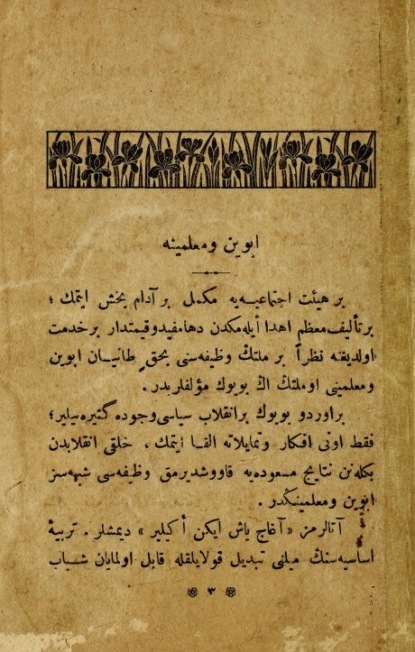 ابوین ومعلمینه
بر هیئت اجتماعیـه‌یه مکمل بر آدام بخش ایتمك ؛
بر تألیف معظم اهدا ایله‌مکدن دها مفید وقیمتدار بر خدمت
اولدیغنه نظراً بر ملتك وظیفه‌سنی بحق طانیـان ابوین
ومعلمینی او ملتك اڭ بویوك مؤلفلریدر .
بر اوردو بویوك بر انقلاب سیاسی وجوده کتیره‌بیلیر ؛
فقط اونی افکار وتمایلاته القـا ایتمك ، خلقی انقلابدن
بکله‌نن نتایج مسعوده‌یه قاووشدیرمق وظیفه‌سی شبهه‌سز
ابوین ومعلمینکدر .
آتالرمز « آغاج یاش ایکن اکیلیر » دیمشلر . تربیۀ
اساسیه‌سنك میلنی تبدیل قولایلقله قابل اولمایان شـباب
۳